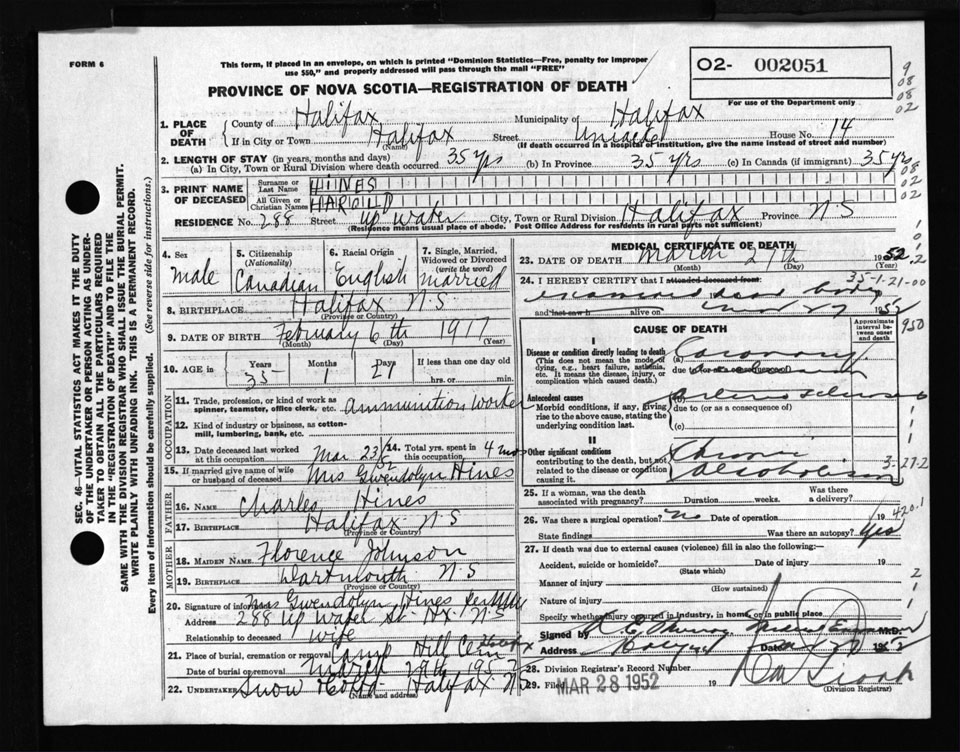 FORM 6
This form, if placed in an envelope, on which is printed "Dominion Statistics—Free, penalty for improper
use $50," and properly addressed will pass through the mail "FREE"
PROVINCE OF NOVA SCOTIA—REGISTRATION OF DEATH
02- 002051
For use of the Department only
9
08
08
02
1. PLACE OF DEATH
County of Halifax Municipality of Halifax
If in City or Town Halifax Street Uniacke House No. 14
(Name) (If death occurred in a hospital or institution, give the name instead of street and number)
2. LENGTH OF STAY (in years, months and days)
(a) In City, Town or Rural Division where death occurred 35 yrs (b) In Province 35 yrs (c) In Canada (if immigrant) 35 yrs
3. PRINT NAME OF DECEASED
Surname or Last Name HINES
All Given or Christian Names HAROLD
RESIDENCE No. 288 Street Up Water City, Town or Rural Division Halifax Province N S
(Residence means usual place of abode. Post Office Address for residents in rural parts not sufficient)
08
02
02
4. Sex
Male
5. Citizenship (Nationality)
Canadian
6. Racial Origin
English
7. Single, Married, Widowed or Divorced (write the word)
Married
8. BIRTHPLACE Halifax N S
(Province or Country)
9. DATE OF BIRTH February 6th 1917
(Month) (Day) (Year)
10. AGE in Years Months Days If less than one day old
35 1 21 hrs. or min.
OCCUPATION
11. Trade, profession, or kind of work as
spinner, teamster, office clerk, etc. Ammunition Worker
12. Kind of industry or business, as cotton-
mill, lumbering, bank, etc.
13. Date deceased last worked at this occupation Mar 23/52
14. Total yrs. spent in this occupation 4 mos
15. If married give name of wife
or husband of deceased Mrs Gwendolyn Hines
FATHER
16. NAME Charles Hines
17. BIRTHPLACE Halifax N S
(Province or Country)
MOTHER
18. MAIDEN NAME Florence Johnson
19. BIRTHPLACE Dartmouth N S
(Province or Country)
20. Signature of informant Mrs Gwendolyn Hines
Address 288 Up Water St Hx N S
Relationship to deceased wife
21. Place of burial, cremation or removal Camp Hill Cem
Date of burial or removal March 29th 1952
22. UNDERTAKER Snow Halifax N S
(Name and address)
MEDICAL CERTIFICATE OF DEATH
23. DATE OF DEATH March 27th 1952
(Month) (Day) (Year)
24. I HEREBY CERTIFY that I attended deceased from: 35-1-21-00
examined dead body
and last saw h alive on 1952
950
CAUSE OF DEATH
Approximate interval between onset and death
I
Disease or condition directly leading to death
(This does not mean the mode of
dying, e.g., heart failure, asthenia,
etc. It means the disease, injury, or
complication which caused death.)
(a) Coronary
due to (or as a consequence of)
Antecedent causes
Morbid conditions, if any, giving
rise to the above cause, stating the
underlying condition last.
(b) Arterio Sclerosis
due to (or as a consequence of)
(c)
II
Other significant conditions
contributing to the death, but not
related to the disease or condition
causing it.
Chronic
alcoholism
3-27-2
25. If a woman, was the death
associated with pregnancy? Duration weeks. Was there a delivery?
26. Was there a surgical operation? no Date of operation 19
420.1
State findings Was there an autopsy? Yes
27. If death was due to external causes (violence) fill in also the following:—
Accident, suicide or homicide? Date of injury 19
(State which)
Manner of injury
(How sustained)
Nature of injury
Specify whether injury occurred in industry, in home or in public place
Signed by M.D.
Address Date 1952
28. Division Registrar's Record Number
29. Filed MAR 28 1952 19
(Division Registrar)
SEC. 46—VITAL STATISTICS ACT MAKES IT THE DUTY
OF THE UNDERTAKER OR PERSON ACTING AS UNDER-
TAKER TO OBTAIN ALL THE PARTICULARS REQUIRED
IN THE "REGISTRATION OF DEATH" AND TO FILE THE
SAME WITH THE DIVISION REGISTRAR WHO SHALL ISSUE THE BURIAL PERMIT.
WRITE PLAINLY WITH UNFADING INK. THIS IS A PERMANENT RECORD.
Every item of information should be carefully supplied. (See reverse side for instructions.)